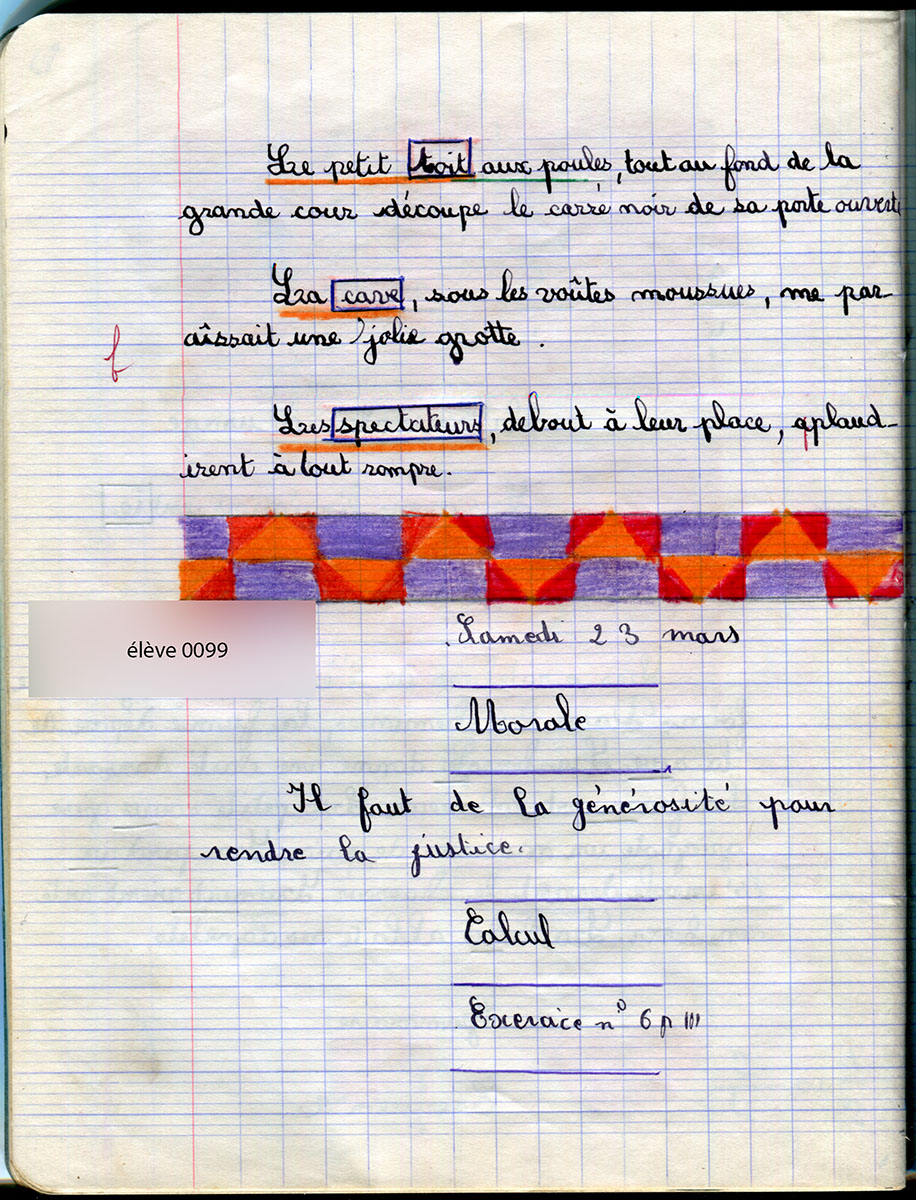 Le petit toit aux poules, tout au fond de la
grande cour découpe le carré noir de sa porte ouverte
La cave, sous les voûtes moussues, me par-
aîssait une jolie grotte.
Les spectateurs, debout à leur place, aplaud-
irent à tout rompre.
élève 0099
Samedi 23 mars
Morale
Il faut de la générosité pour
rendre la justice.
Calcul
Exercice n° 6 p 111